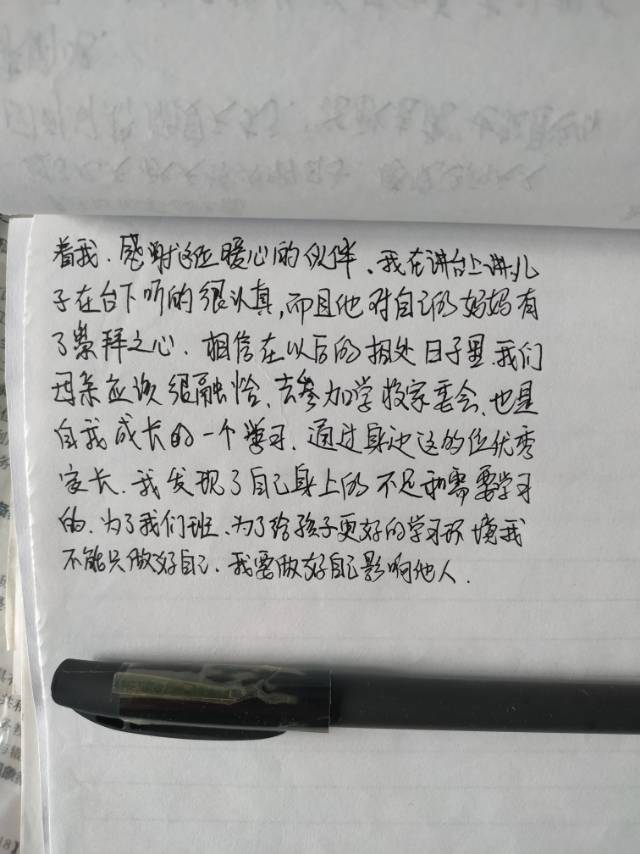 着我.感谢这位暖心的伙伴、我在讲台上讲,儿
子在台下听的很认真,而且他对自己的妈妈有
了崇拜之心.相信在以后的相处日子里.我们
母亲应该很融恰、去参加学校家委会、也是
自我成长的一个学习.通过身边这的位优秀
家长.我发现了自己身上的不足和需要学习
的.为了我们班.为了给孩子更好的学习环境我
不能只做好自己.我要做好自己影响他人.